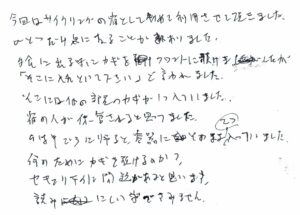 今回はサイクリングの宿として初めて利用させて頂きました。
ひとつだけ気になることがありました。
夕食に出る時にカギをフロントに預けましたが
「そこに入れといて下さい」と言われました。
そこには他の部屋のカギが入っていました。
宿の人が保管されると思っていました。
カギが そのまま入っていました。
何のためにカギを預けるのか?
セキュリティに問題があると思います。
読みにくい字ですみません。